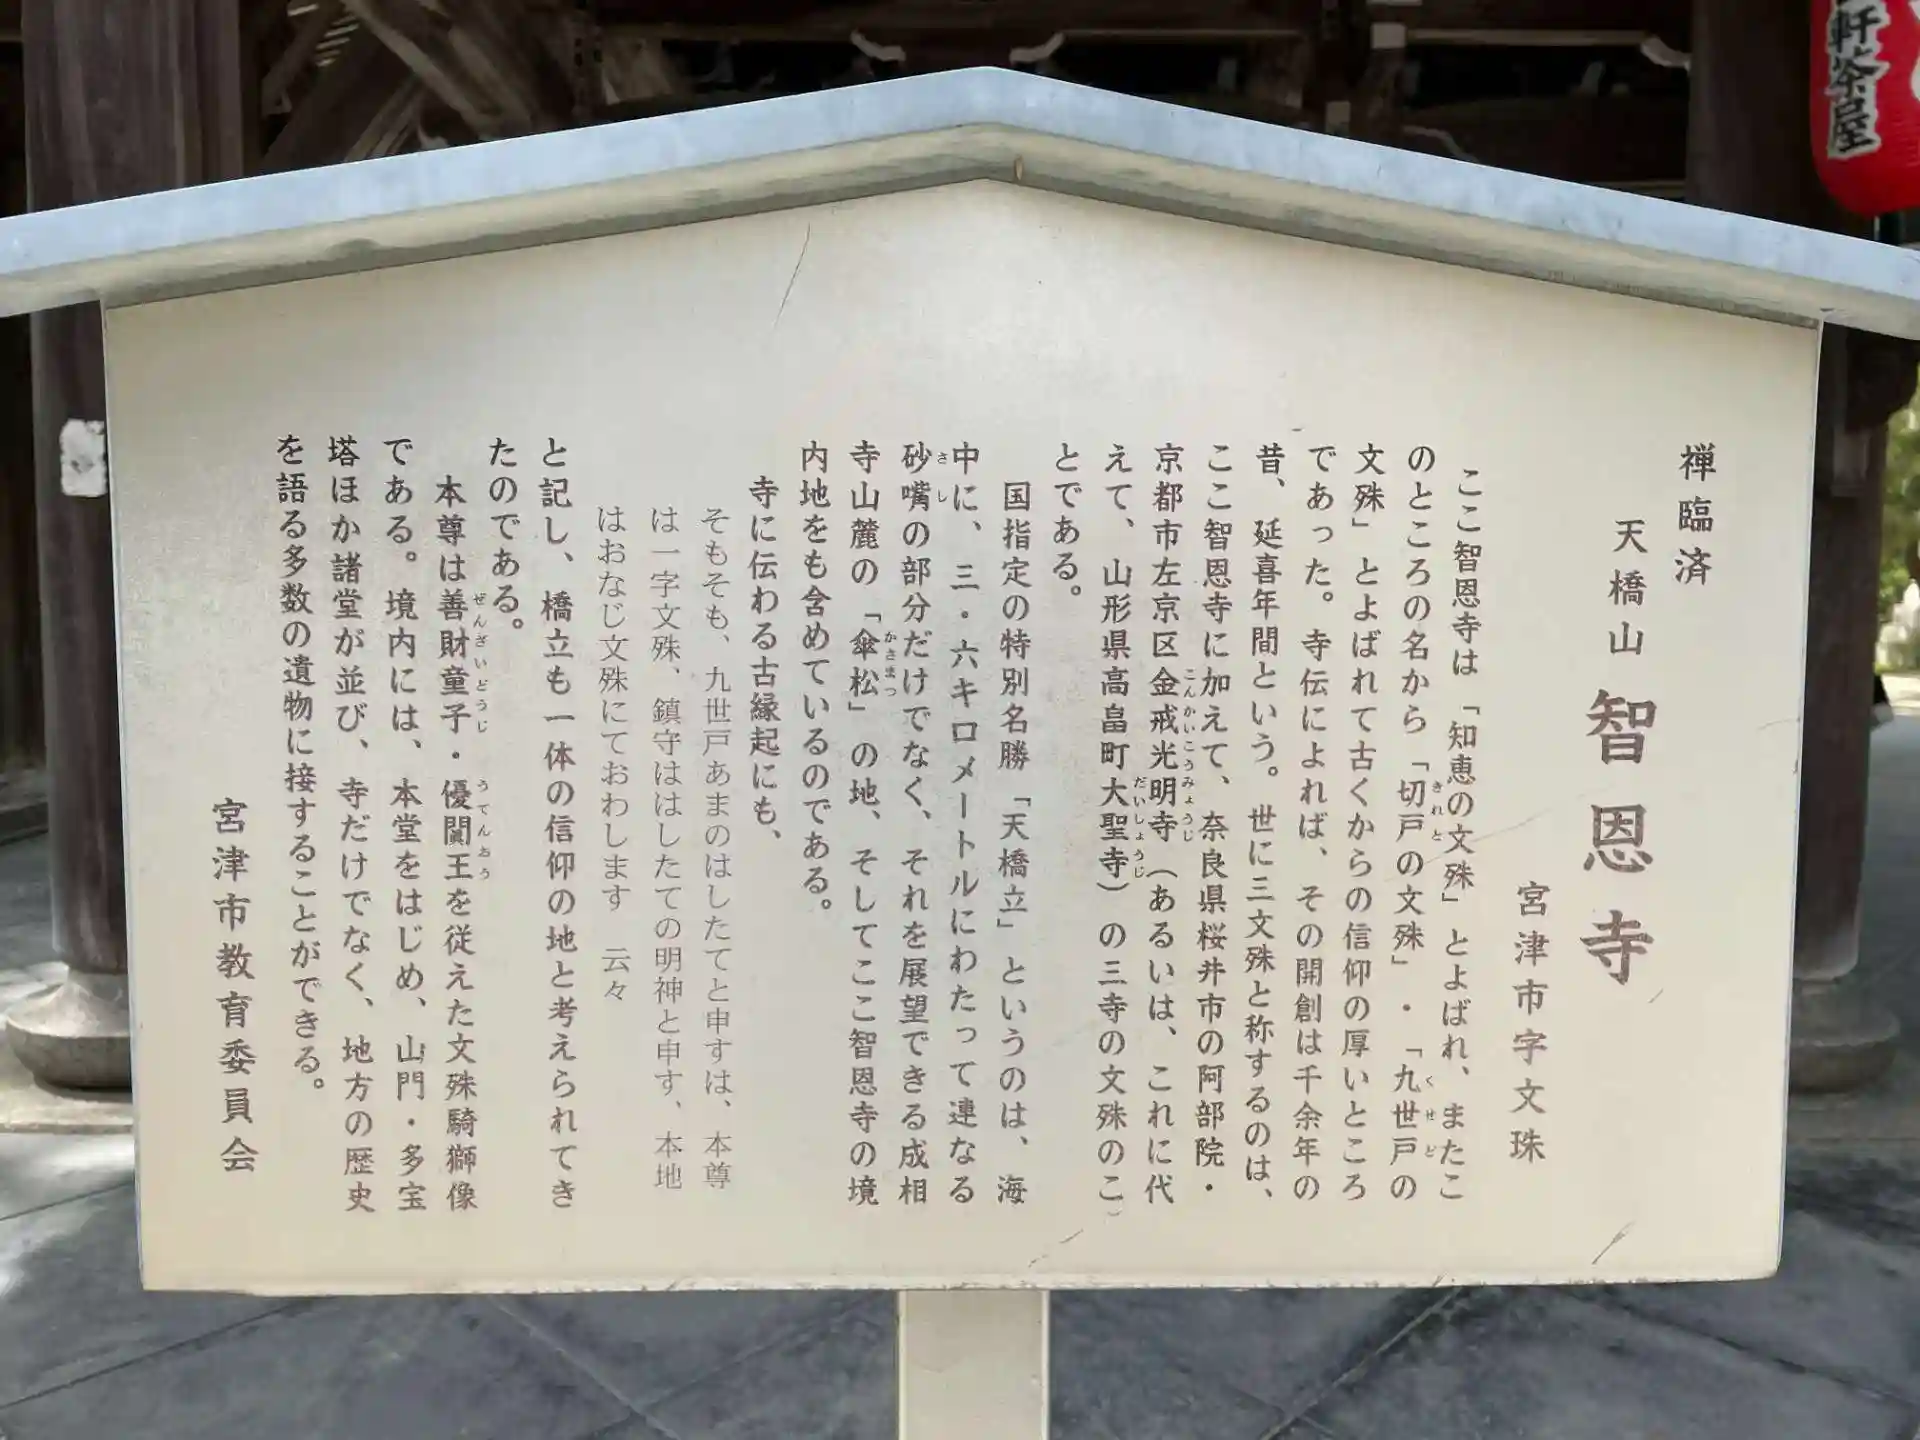 禅臨済
天橋山 智恩寺
宮津市字文珠
ここ智恩寺は「知恵の文殊」とよばれ、またこ
のところの名から「切戸の文殊」・「九世戸の
文殊」とよばれて古くからの信仰の厚いところ
であった。寺伝によれば、その開創は千余年の
昔、延喜年間という。世に三文殊と称するのは、
ここ智恩寺に加えて、奈良県桜井市の阿部院・
京都市左京区金戒光明寺（あるいは、これに代
えて、山形県高畠町大聖寺）の三寺の文殊のこ
とである。
国指定の特別名勝「天橋立」というのは、海
中に、三・六キロメートルにわたって連なる
砂嘴の部分だけでなく、それを展望できる成相
寺山麓の「傘松」の地、そしてここ智恩寺の境
内地をも含めているのである。
寺に伝わる古縁起にも、
そもそも、九世戸あまのはしたてと申すは、本尊
は一字文殊、鎮守ははしたての明神と申す、本地
はおなじ文殊にておわします 云々
と記し、橋立も一体の信仰の地と考えられてき
たのである。
本尊は善財童子・優闐王を従えた文殊騎獅像
である。境内には、本堂をはじめ、山門・多宝
塔ほか諸堂が並び、寺だけでなく、地方の歴史
を語る多数の遺物に接することができる。
宮津市教育委員会
軒茶屋